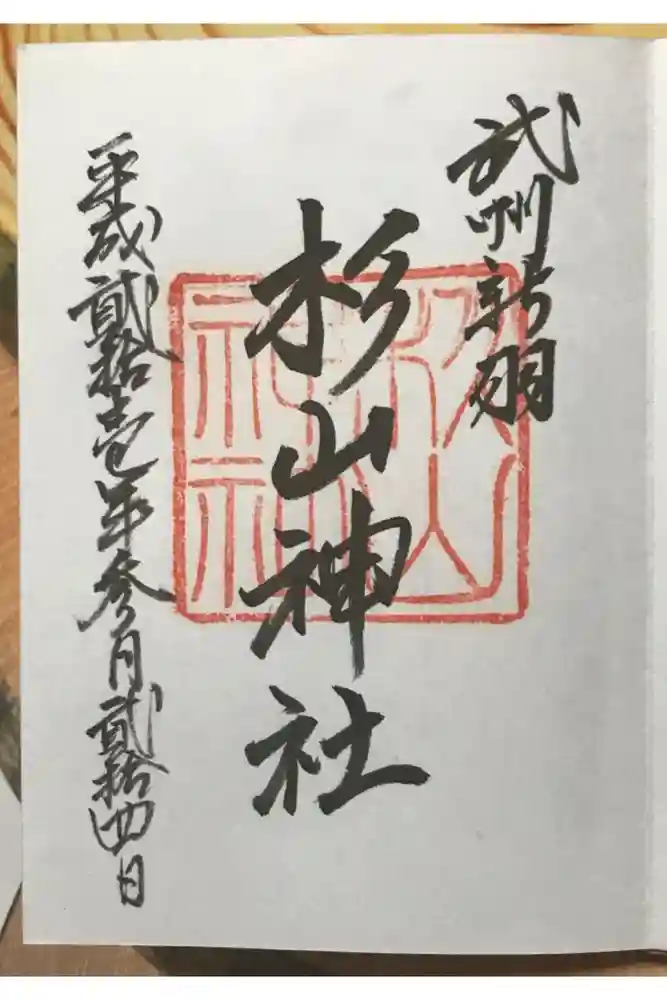 武州新羽
杉山神社
杉山神社
平成貳拾壱年参月貳拾四日